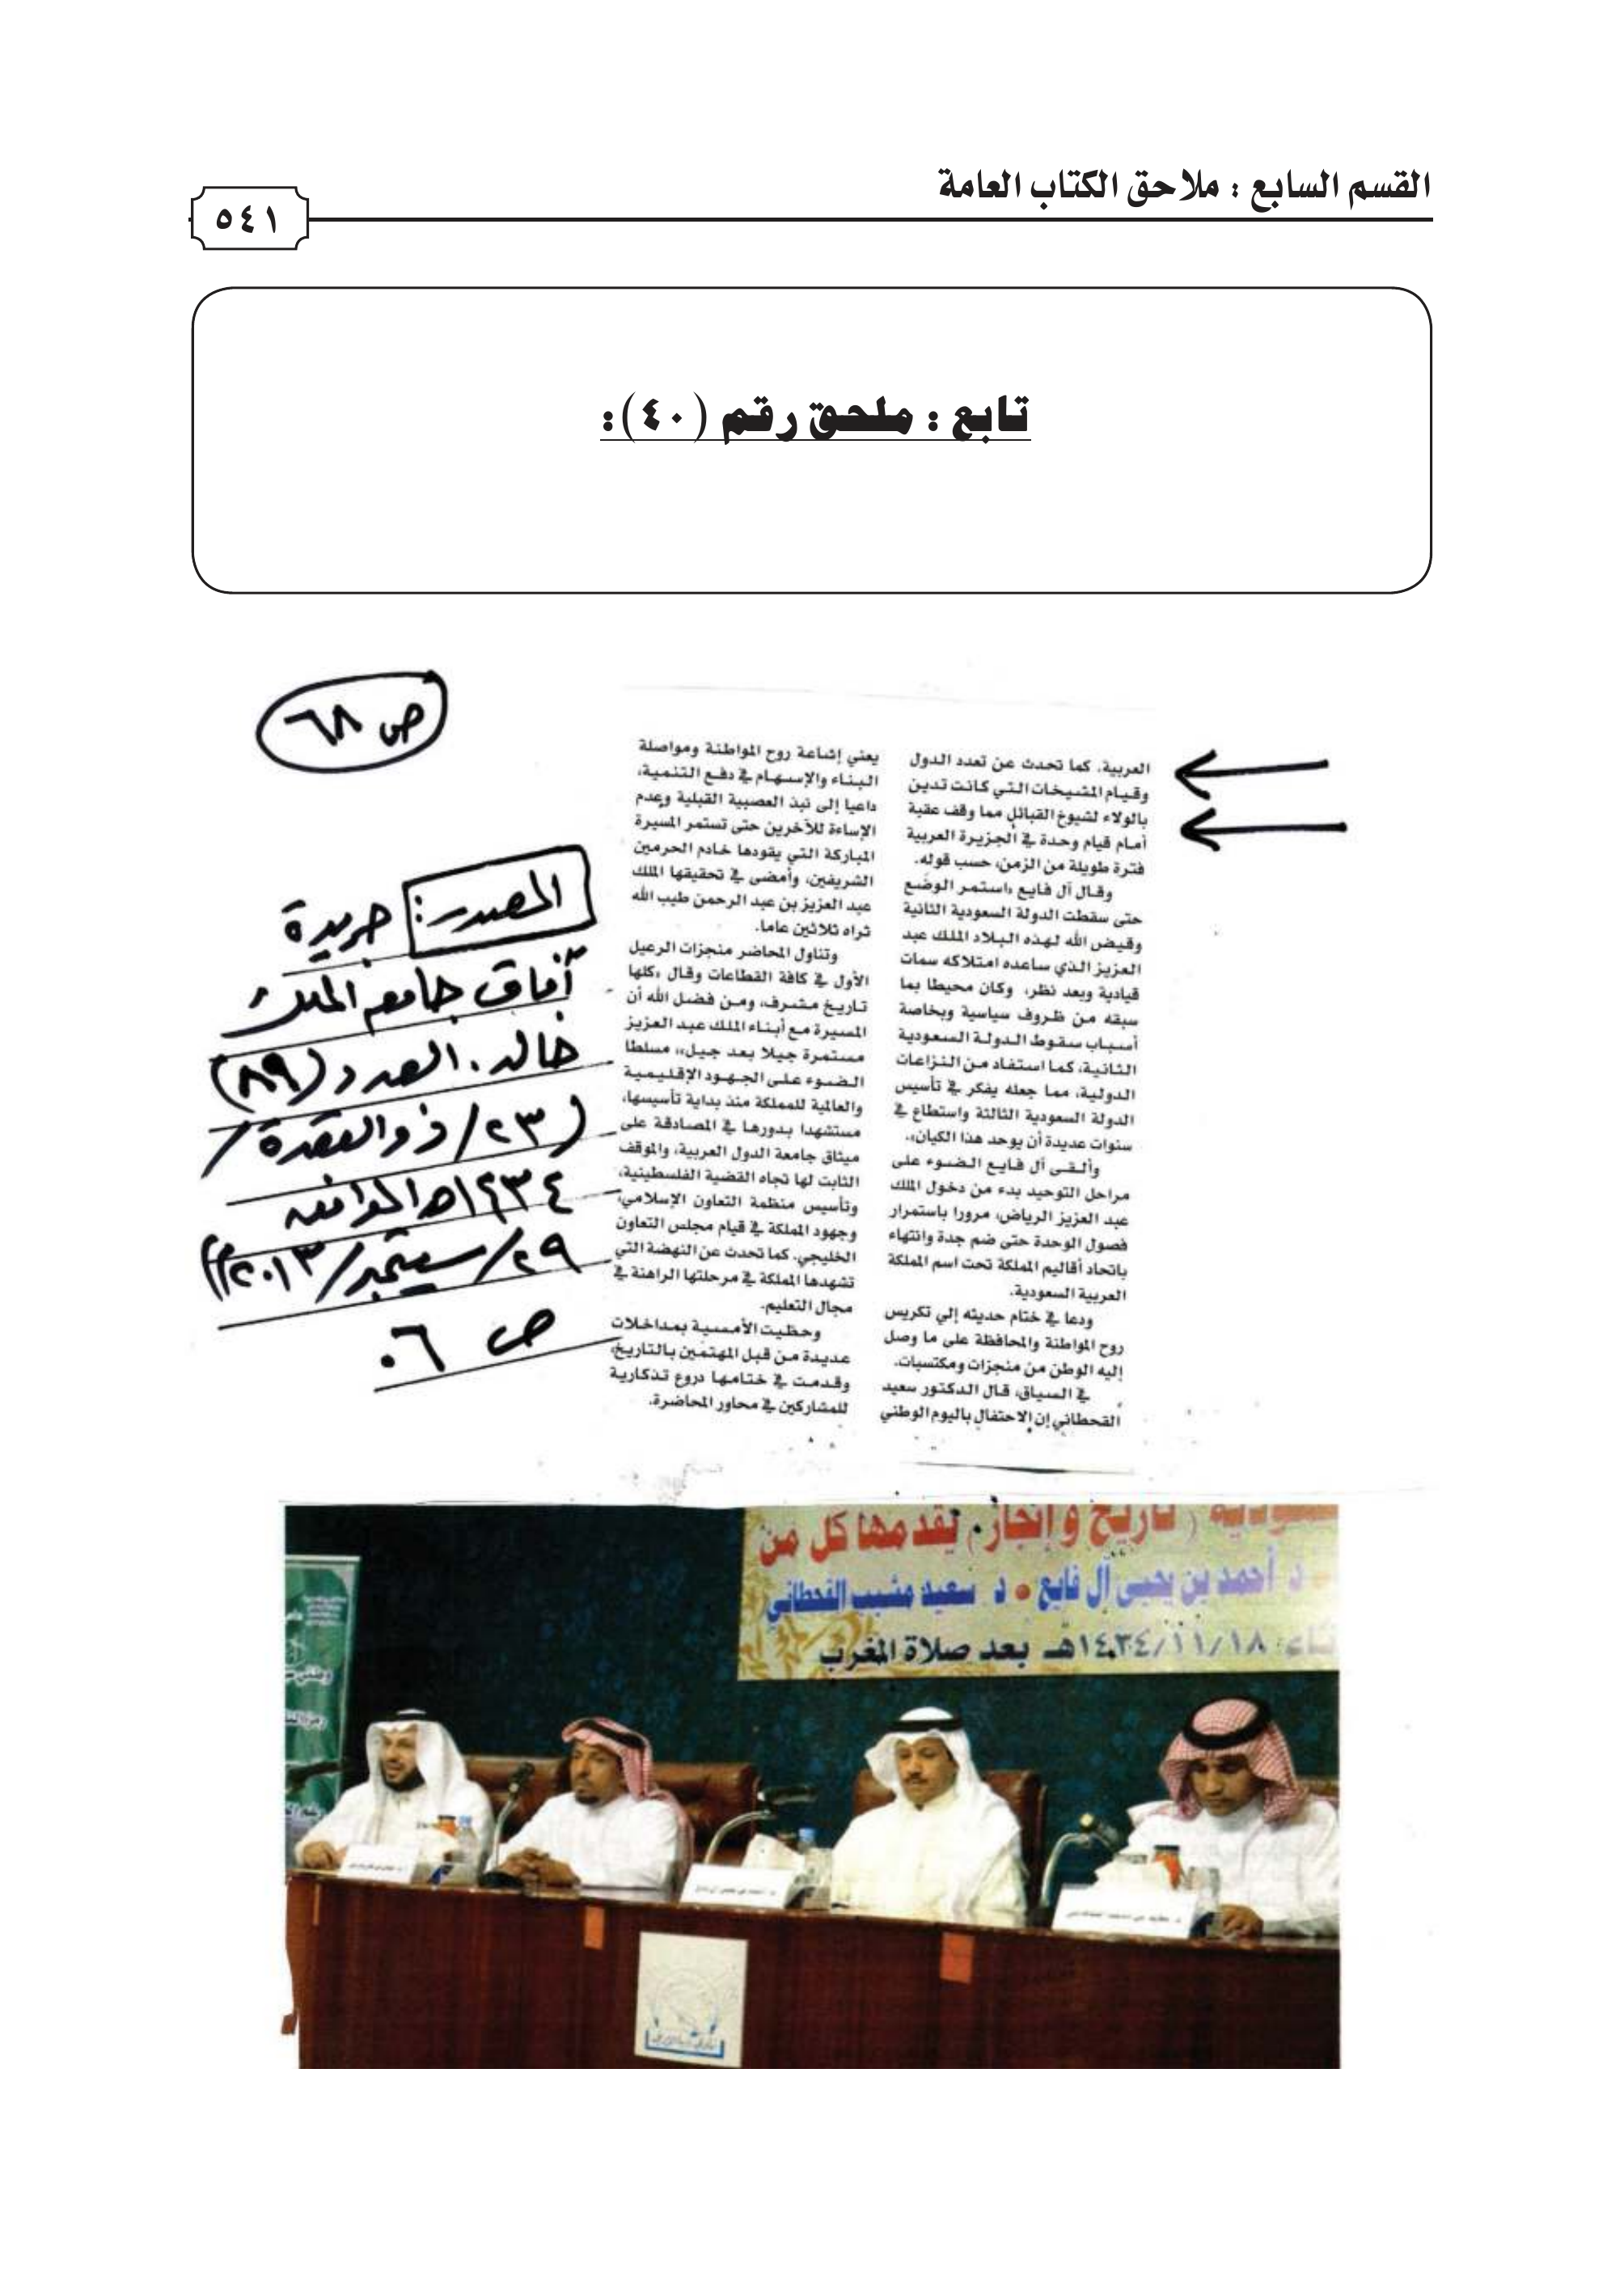 القسم السابع : ملاحق الكتاب العامة
٥٤١
تابع : ملحق رقم (٤٠):
ص ٦٨
العربية. كما تحدث عن تعدد الدول
وقيام المشيخات التي كانت تدين
بالولاء لشيوخ القبائل مما وقف عقبة
أمام قيام وحدة في الجزيرة العربية
فترة طويلة من الزمن، حسب قوله.
وقال آل فايع «استمر الوضع
حتى سقطت الدولة السعودية الثانية
وقيض الله لهذه البلاد الملك عبد
العزيز الذي ساعده امتلاكه سمات
قيادية وبعد نظر، وكان محيطا بما
سبقه من ظروف سياسية وبخاصة
أسباب سقوط الدولة السعودية
الثانية، كما استفاد من النزاعات
الدولية، مما جعله يفكر في تأسيس
الدولة السعودية الثالثة واستطاع في
سنوات عديدة أن يوحد هذا الكيان».
وألقى آل فايع الضوء على
مراحل التوحيد بدء من دخول الملك
عبد العزيز الرياض، مرورا باستمرار
فصول الوحدة حتى ضم جدة وانتهاء
باتحاد أقاليم المملكة تحت اسم المملكة
العربية السعودية.
ودعا في ختام حديثه إلي تكريس
روح المواطنة والمحافظة على ما وصل
إليه الوطن من منجزات ومكتسبات.
في السياق، قال الدكتور سعيد
القحطاني إن الاحتفال باليوم الوطني
يعني إشاعة روح المواطنة ومواصلة
البناء والإسهام في دفع التنمية،
داعيا إلى نبذ العصبية القبلية وعدم
الإساءة للآخرين حتى تستمر المسيرة
المباركة التي يقودها خادم الحرمين
الشريفين، وأمضى في تحقيقها الملك
عبد العزيز بن عبد الرحمن طيب الله
ثراه ثلاثين عاما.
وتناول المحاضر منجزات الرعيل
الأول في كافة القطاعات وقال «كلها
تاريخ مشرف، ومن فضل الله أن
المسيرة مع أبناء الملك عبد العزيز
مستمرة جيلا بعد جيل»، مسلطا
الضوء على الجهود الإقليمية
والعالمية للمملكة منذ بداية تأسيسها،
مستشهدا بدورها في المصادقة على
ميثاق جامعة الدول العربية، والموقف
الثابت لها تجاه القضية الفلسطينية،
وتأسيس منظمة التعاون الإسلامي،
وجهود المملكة في قيام مجلس التعاون
الخليجي. كما تحدث عن النهضة التي
تشهدها المملكة في مرحلتها الراهنة في
مجال التعليم.
وحظيت الأمسية بمداخلات
عديدة من قبل المهتمين بالتاريخ،
وقدمت في ختامها دروع تذكارية
للمشاركين في محاور المحاضرة.
المصدر: جريدة
آفاق جامعة الملك
خالد. العدد (٨٩)
(٢٣/ ذو القعدة /
١٤٣٤هـ الموافق
٢٩/ سبتمبر/ ٢٠١٣م)
ص ٠٦
( تاريخ و إنجاز ) يقدمها كل من
د أحمد بن يحيى آل فايع • د سعيد مشبب القحطاني
١٤٣٤/١١/١٨هـ بعد صلاة المغرب